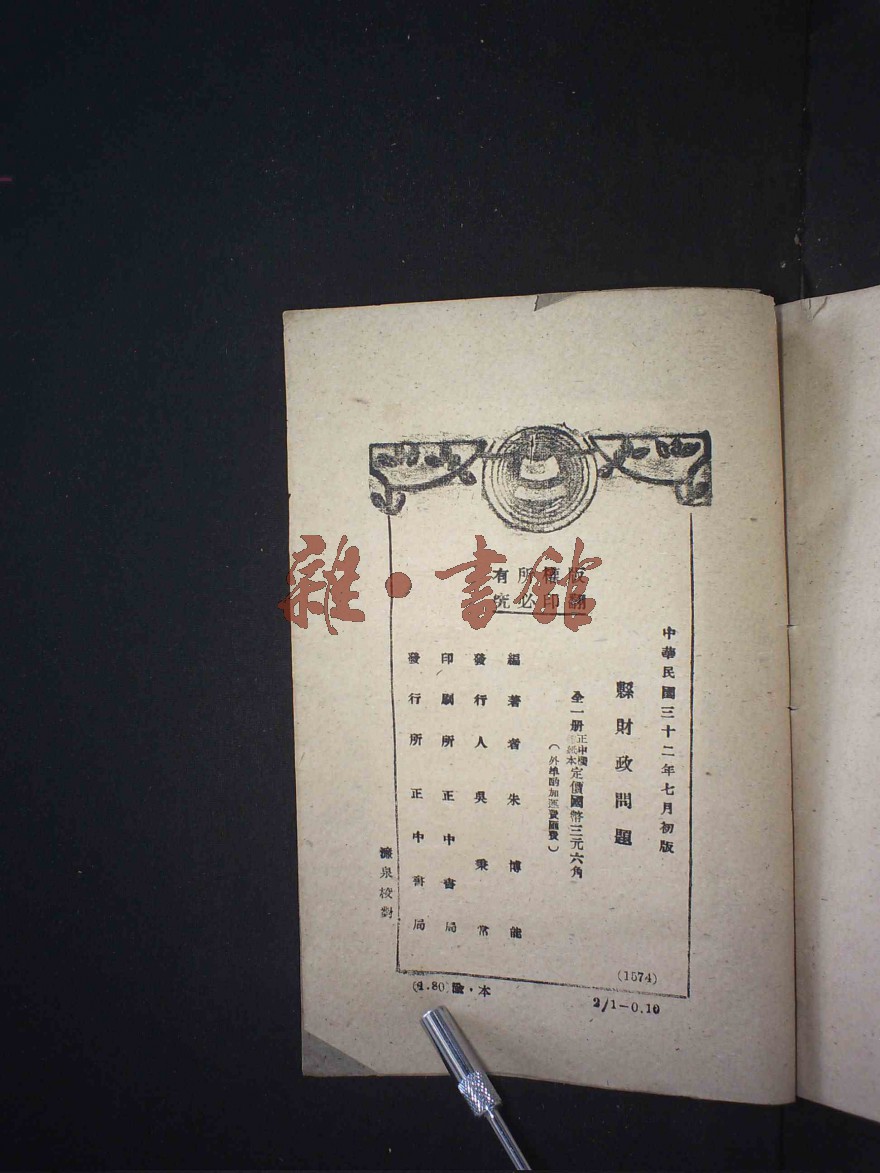 版權所有
翻印必究
中華民國三十二年七月初版
縣財政問題
全一册 正中 本 定價國幣三元六角
(外埠酌加運費匯費)
編著者 朱博能
發行人 吳秉常
印刷所 正中書局
發行所 正中書局
源泉校對
(1574)
(1.80) · 本
2/1-0.10
雜·書館